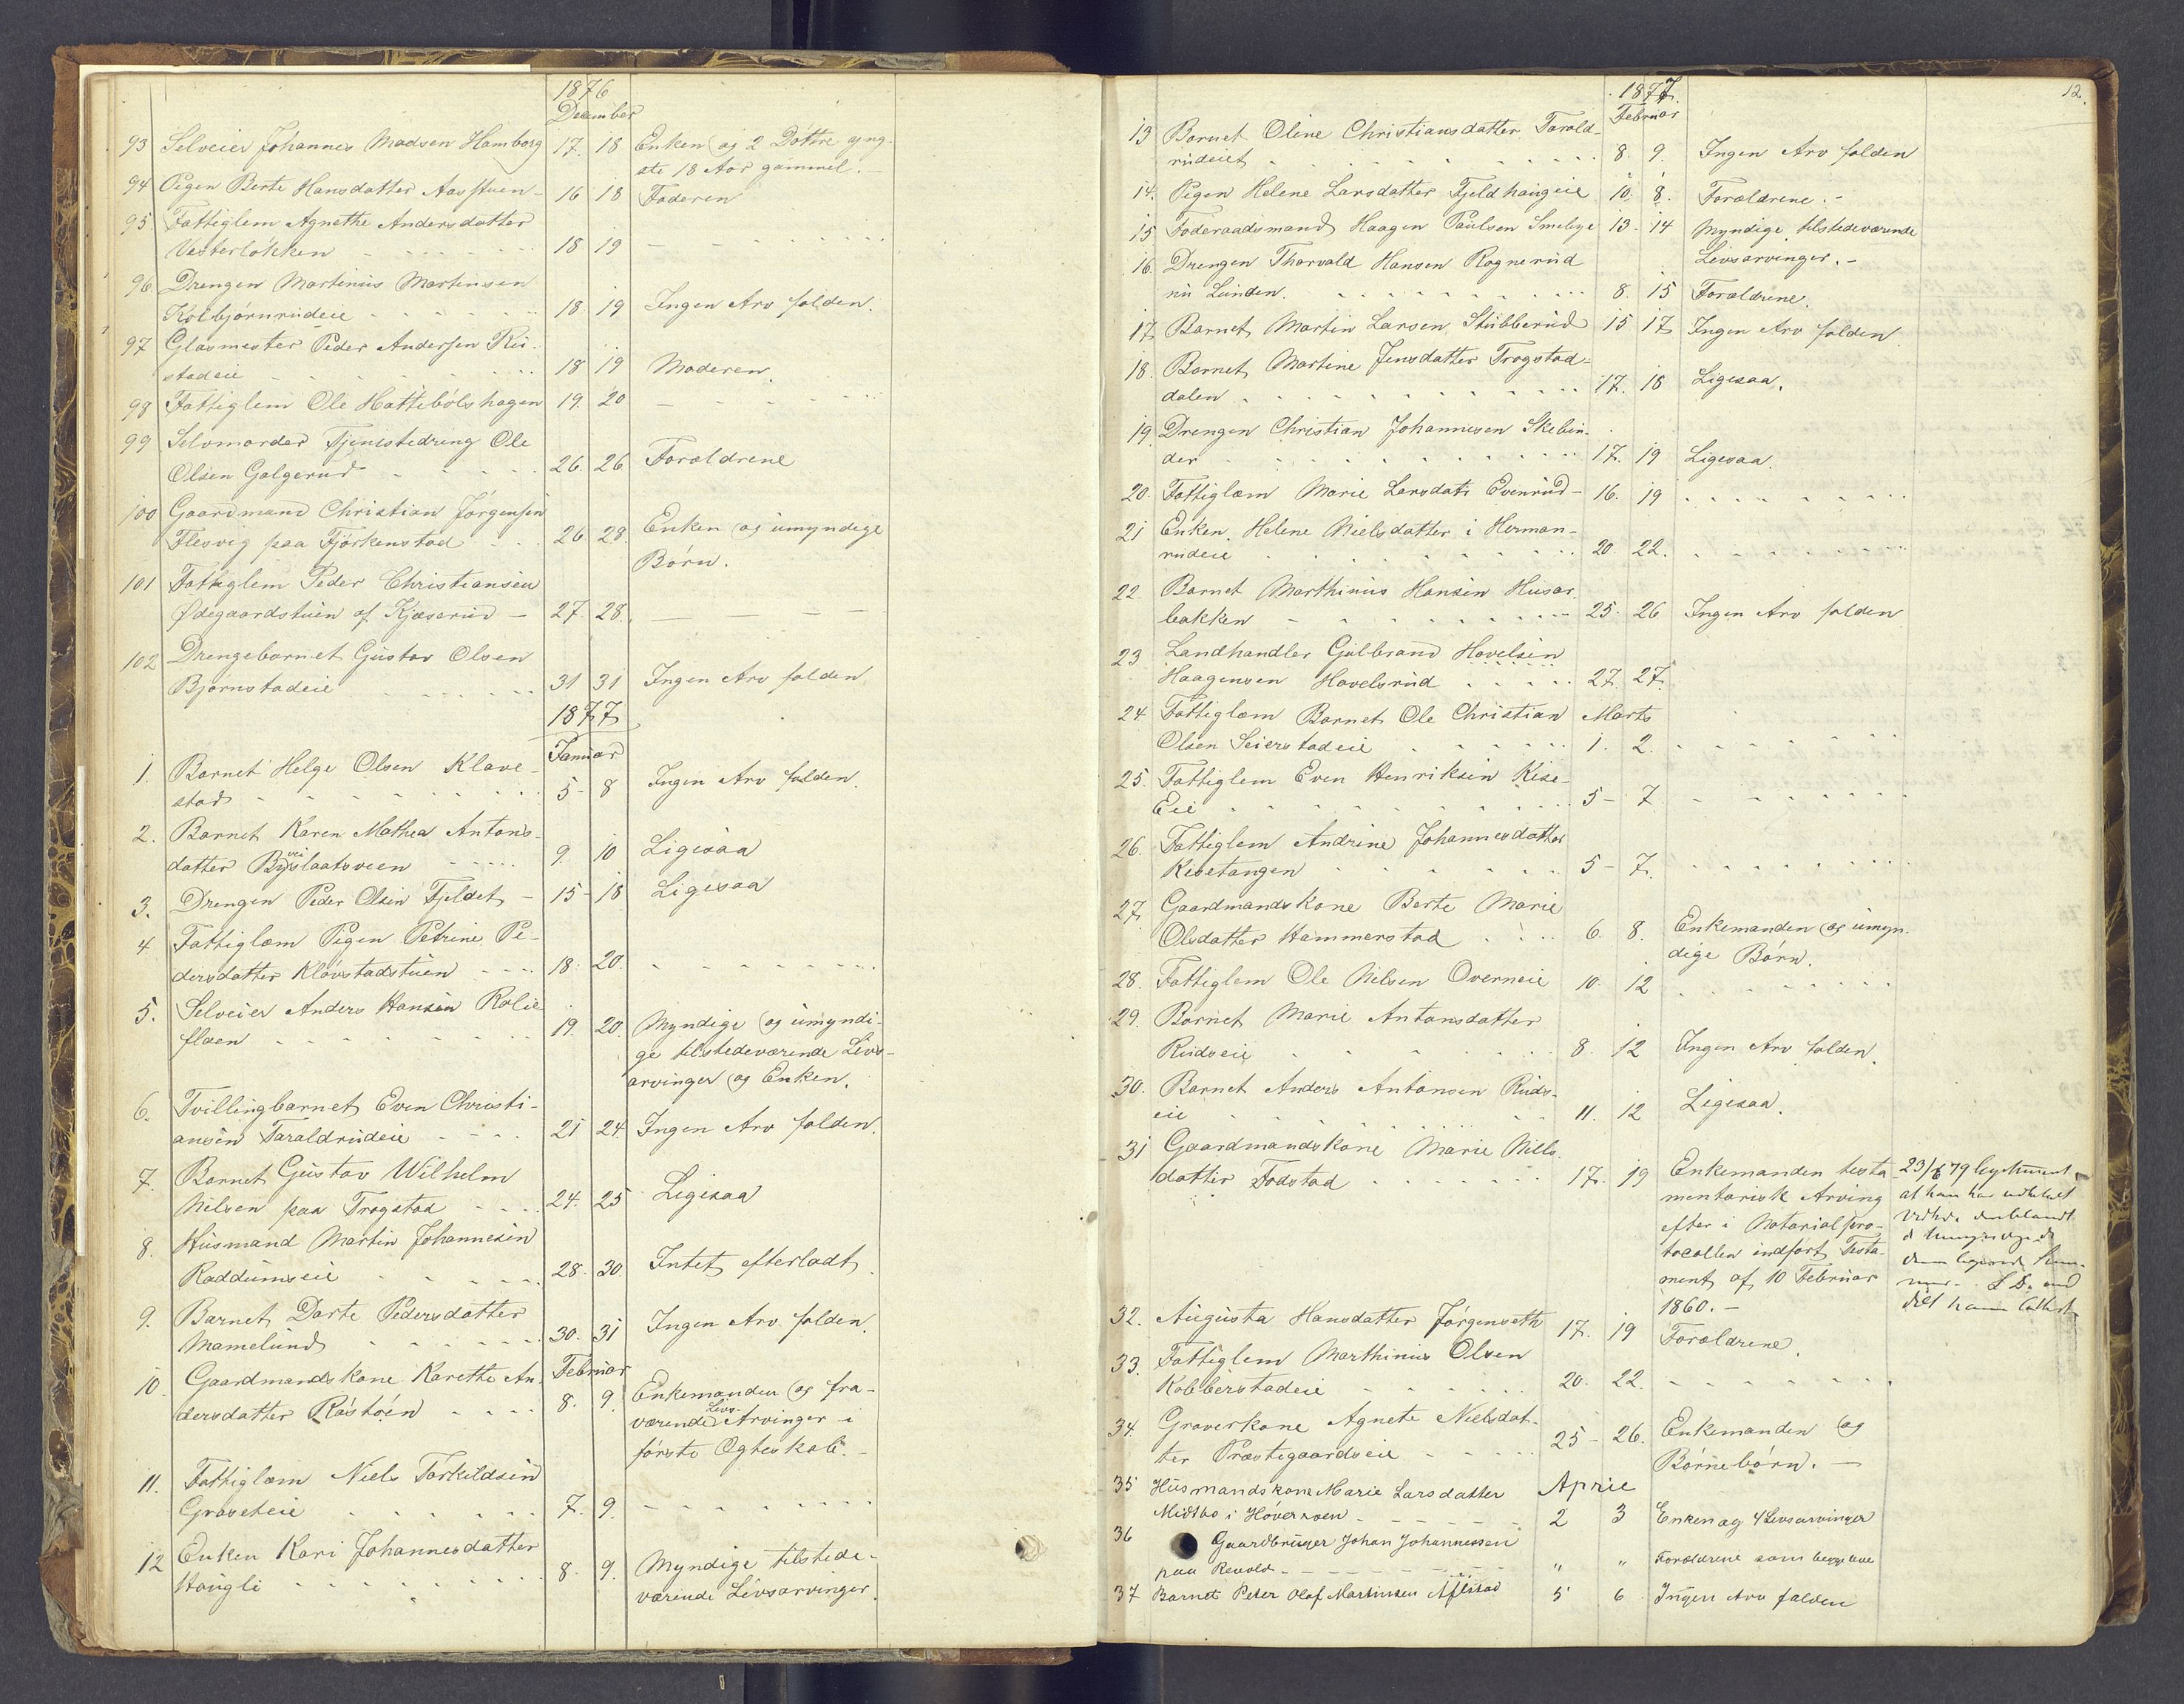 1876
December
93 Selveier Johannes Madsen Hamborg 17. 18 Enken og 2 Døttre yng-
ste 18 Aar gammel.
94 Pigen Berte Hansdatter Aasstuen - 16 18 Faderen
95 Fattiglem Agnethe Andersdatter
Vesterløkken 18 19 -
96. Drengen Martinius Martinsen
Kolbjørnrudeie 18 19 Ingen Arv falden.
97 Glasmester Peder Andersen Ru-
stadeie 18 19 Moderen.
98 Fattiglem Ole Hattebølshagen 19. 20 -
99 Selvmorder Tjenestedreng Ole
Olsen Galgerud 26. 26 Forældrene
100 Gaardmand Christian Jørgensen
Flesvig paa Fjørkenstad 26 28. Enken og umyndige
Børn.
101 Fattiglem Peder Christiansen
Ødegaardstuen af Kjæserud - 27. 28. -
102 Drengebarnet Gustav Olsen
Bjørnstadeie 31 31 Ingen Arv falden
1877
Januar
1. Barnet Helge Olsen Klave-
stad 5- 8 Ingen Arv falden.
2. Barnet Karen Mathea Antons-
datter Byslaatsveen 9. 10 Ligesaa
3. Drengen Peder Olsen Fjeldet - 15- 18 Ligesaa
4 Fattiglem Pigen Petrine Pe-
dersdatter Kløvstadstuen 18. 20.
5. Selveier Anders Hansen Rolie
flaen 19. 20. Myndige og umyndi-
ge tilstedeværende Livs-
arvinger og Enken.
6. Tvillingbarnet Even Christi-
ansen Taraldrudeie 21 24. Ingen Arv falden.
7. Barnet Gustav Wilhelm
Nilsen paa Trogstad 24. 25 Ligesaa
8. Husmand Martin Johannesen
Raddumseie 28. 30. Intet efterladt.
9. Barnet Dorte Pedersdatter
Mamelund 30. 31 Ingen Arv falden.
Februar
10 Gaardmandskone Karethe An-
dersdatter Røstøen 8. 9. Enkemanden og fra-
værende Livs- Arvinger i
første Ægteskab. -
11. Fattiglem Niels Torkildsen
Graveteie 7. 9.
12 Enken Kari Johannesdatter
Haugli 8. 9. Myndige tilstede-
værende Livsarvinger.
12.
1877.
Februar
13 Barnet Oline Christiansdatter Tarald-
rudeiet 8. 9. Ingen Arv falden
14. Pigen Helene Larsdatter Fjeldhaugeie 10. 8. Forældrene. -
15 Føderaadsmand Haagen Paulsen Smebye 13. 14 Myndige tilstedeværende
Livsarvinger. -
16. Drengen Thorvald Hansen Rognerud
nu Lunden. 8. 15 Forældrene.
17. Barnet Martin Larsen Stubberud 15 17 Ingen Arv falden.
18. Barnet Martine Jensdatter Trogstad-
dalen 17. 18 Ligesaa.
19. Drengen Christian Johannesen Skebin-
der 17. 19 Ligesaa.
20. Fattiglem Marie Larsdatr Evenrud- 16. 19
21 Enken Helene Nielsdatter i Herman-
rudeie 20. 22.
22. Barnet Marthinus Hansen Husar-
bakken 25. 26 Ingen Arv falden
23 Landhandler Gulbrand Hovelsen
Haagensen Hovelsrud 27. 27.
24. Fattiglem Barnet Ole Christian Marts
Olsen Seierstadeie 1. 2.
25. Fattiglem Even Henriksen Kise-
Eie 5- 7.
26. Fattiglem Andrine Johannesdatter
Kisetangen 5- 7.
27. Gaardmandskone Berte Marie
Olsdatter Hammerstad 6. 8. Enkemanden og umyn-
dige Børn.
28. Fattiglem Ole Nilsen Overneie 10. 12
29. Barnet Marie Antonsdatter
Rudseie 8. 12 Ingen Arv falden.
30. Barnet Anders Antonsen Ruds-
eie 11. 12 Ligesaa.
31 Gaardmandskone Marie Niels-
datter Fodstad 17. 19 Enkemanden testa-
mentarisk Arving
efter i Notarialpro-
tocollen indført Testa-
ment af 10 Februar
1860. -
23/6 79
at han har
32. Augusta Hansdatter Jørgenseth 17. 19 Forældrene.
33. Fattiglem Marthinus Olsen
Kobberstadeie 20. 22.
34. Graverkone Agnete Nielsdat-
ter Præstegaardseie 25- 26. Enkemanden og
Børnebørn. -
35 Husmandskone Marie Larsdatter April
Midtbo i Høversoen 2 3 Enken og 4 Livsarvinger
36 Gaardbruger Johan Johannessen
paa Revold " " Forældrene som begge leve
37 Barnet Peter Olaf Martinsen Aflstad 5 6 Ingen Arv falden